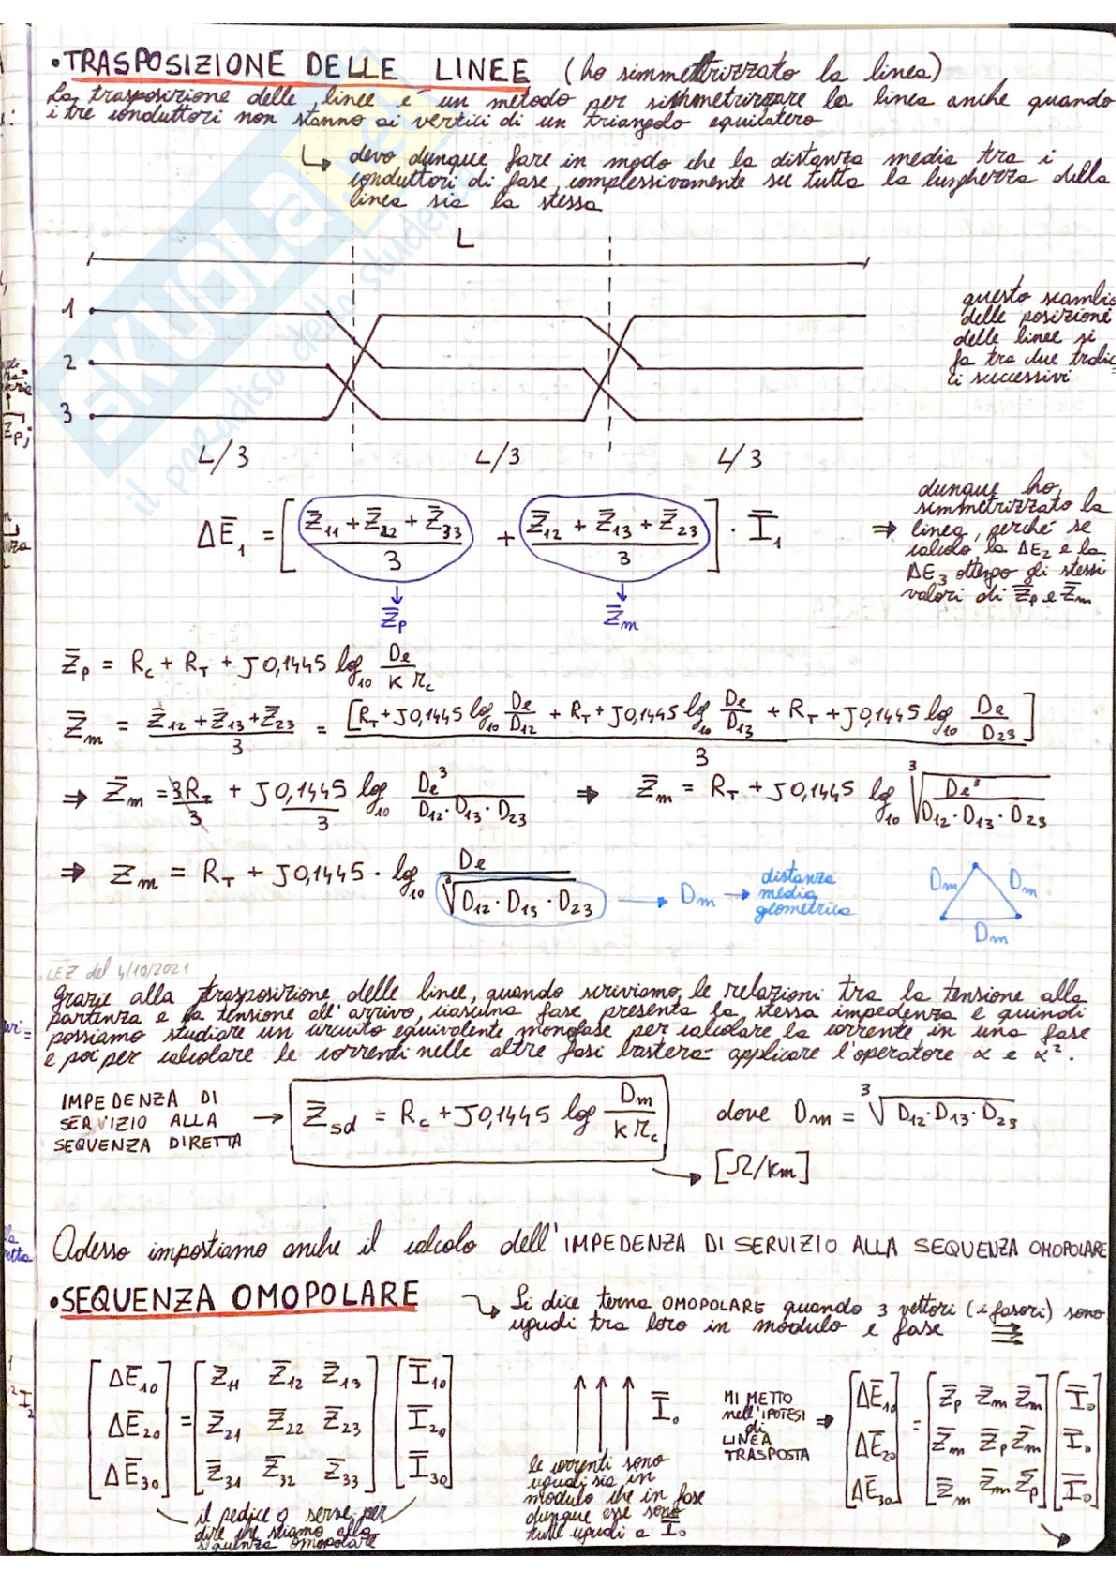 •TRASPOSIZIONE DELLE LINEE (ho simmetrizzato la linea)
La trasposizione delle linee è un metodo per simmetrizzare la linea anche quando
i tre conduttori non stanno ai vertici di un triangolo equilatero
↳ devo dunque fare in modo che la distanza media tra i
conduttori di fase complessivamente su tutta la lunghezza della
linea sia la stessa
L
1
2
3
L/3 L/3 L/3
questo scambio
delle posizione
delle linee si
fa tra due tralic
ci successivi
ΔĒ₁ = [ (Z̄₁₁ + Z̄₂₂ + Z̄₃₃)/3 + (Z̄₁₂ + Z̄₁₃ + Z̄₂₃)/3 ] · Ī₁
Z̄p Z̄m
⇒ dunque ho
simmetrizzato la
linea, perché se
calcolo la ΔE₂ e la
ΔE₃ ottengo gli stessi
valori di Z̄p e Z̄m
Z̄p = Rc + RT + J0,1445 log₁₀ De/(K rc)
Z̄m = (Z̄₁₂ + Z̄₁₃ + Z̄₂₃)/3 = [RT + J0,1445 log₁₀ De/D₁₂ + RT + J0,1445 log₁₀ De/D₁₃ + RT + J0,1445 log₁₀ De/D₂₃]/3
⇒ Z̄m = 3RT/3 + J0,1445/3 log₁₀ De³/(D₁₂·D₁₃·D₂₃) ⇒ Z̄m = RT + J0,1445 log₁₀ ³√(De³/(D₁₂·D₁₃·D₂₃))
⇒ Zm = RT + J0,1445 · log₁₀ De/³√(D₁₂·D₁₃·D₂₃) → Dm → distanza
media
geometrica
Dm Dm
Dm
LEZ del 4/10/2021
grazie alla trasposizione delle linee, quando scriviamo le relazioni tra la tensione alla
partenza e la tensione all'arrivo, ciascuna fase presenta la stessa impedenza e quindi
possiamo studiare un circuito equivalente monofase per calcolare la corrente in una fase
e poi per calcolare le correnti nelle altre fasi basterà applicare l'operatore α e α².
IMPEDENZA DI
SERVIZIO ALLA
SEQUENZA DIRETTA
→ Z̄sd = Rc + J0,1445 log Dm/(K rc) dove Dm = ³√(D₁₂·D₁₃·D₂₃)
→ [Ω/Km]
Adesso impostiamo anche il calcolo dell'IMPEDENZA DI SERVIZIO ALLA SEQUENZA OMOPOLARE
•SEQUENZA OMOPOLARE
↳ Si dice terna OMOPOLARE quando 3 vettori (i fasori) sono
uguali tra loro in modulo e fase
[ΔĒ₁₀] [Z̄₁₁ Z̄₁₂ Z̄₁₃] [Ī₁₀]
[ΔĒ₂₀] = [Z̄₂₁ Z̄₂₂ Z̄₂₃] [Ī₂₀]
[ΔĒ₃₀] [Z̄₃₁ Z̄₃₂ Z̄₃₃] [Ī₃₀]
il pedice 0 serve per
dire che siamo alla
sequenza omopolare
Ī₀
le correnti sono
uguali sia in
modulo che in fase
dunque esse sono
tutte uguali a Ī₀
MI METTO
nell'IPOTESI
di
LINEA
TRASPOSTA
⇒
[ΔĒ₁₀] [Z̄p Z̄m Z̄m] [Ī₀]
[ΔĒ₂₀] = [Z̄m Z̄p Z̄m] [Ī₀]
[ΔĒ₃₀] [Z̄m Z̄m Z̄p] [Ī₀]
SKUOLA
il paradiso dello studente